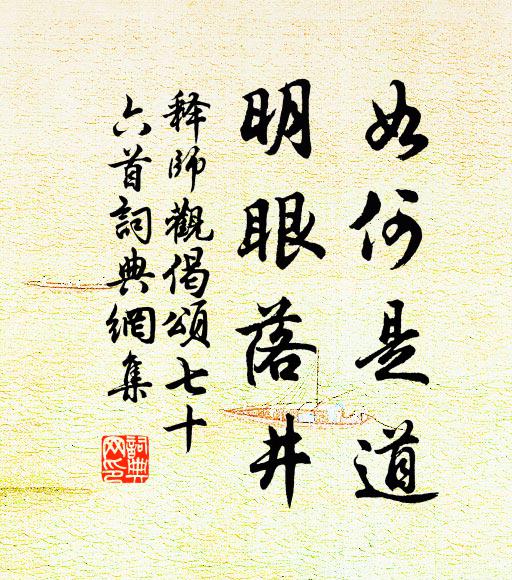 如何是道
明眼落井
释師觀偈頌七十
六首詞典網集
詞典
网印